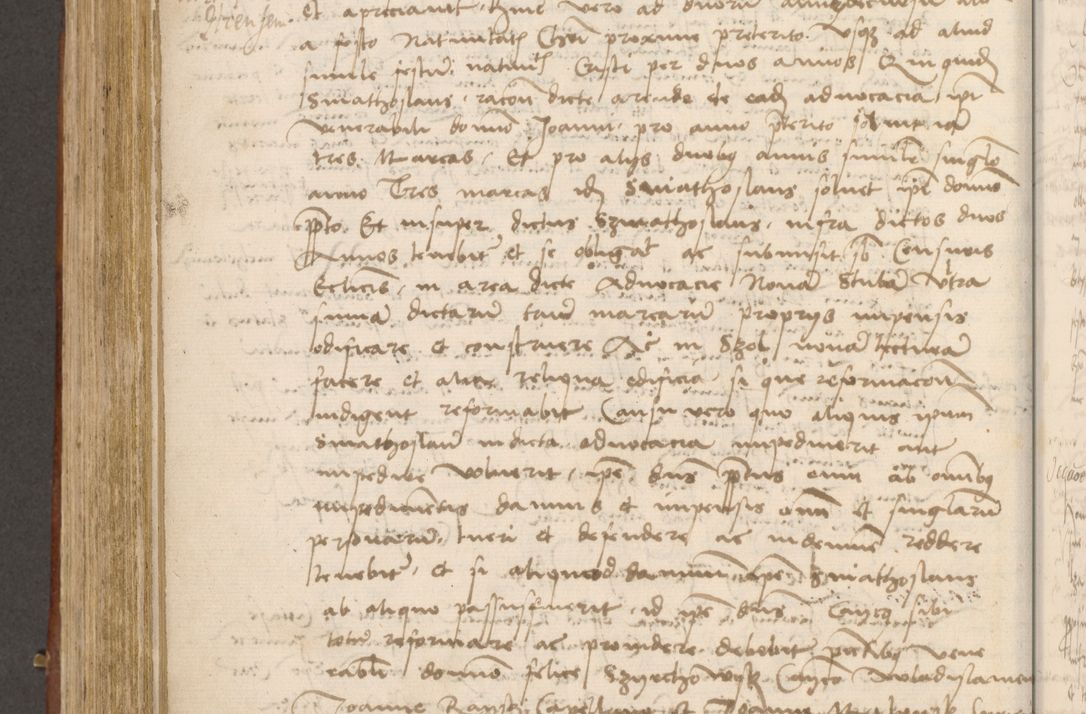 et apreciavit hinc vero ad duorum
a festo Nativitatis Christi proxime preterito Usque ad aliud
simile festum nativitatis Cristi per duos annos Et in quidem
Swiathoslaus racione dicte arende de eadem advocacia ipi
venerabili domino Joanni pro anno preterito solvit iam
tres Marcas Et pro aliis duobus annis simili singulo
anno Tres marcas idem Swiathoslaus solvet ipi domino
prefato Et insuper dictus Szwiathoslaus infra dictos duos
Annos tenebitur et se obligavit ac submisit sub Censuris
Ecclesiasticis in area dicte Advocacie Novam Stubam Ultra
summam dictarum trium marcarum propriis impensis
edificare et construere Ac in Szol novam tecturam
facere et alia reliqua edificia si que reformacione
indigent reformabit Causu vero quo aliquis ipsum
Swiathoslaum in dicta advocacia impediverit aut
impedire voluerit ipse dominus prefatus eum ab omnibus
impedimentis damnis et impensis omnium et singularum
personarum tueri et defendere ac indemnem reddere
tenebitur et si aliquod damnum ipse Swiathoslaus
ab aliquo passus fuerit id ipse dominus Canonicus sibi
totum reformare ac providere debebit presentibus Vene
rabili domino felice Szyrchowsky Canonico Wladislavien
Joanne